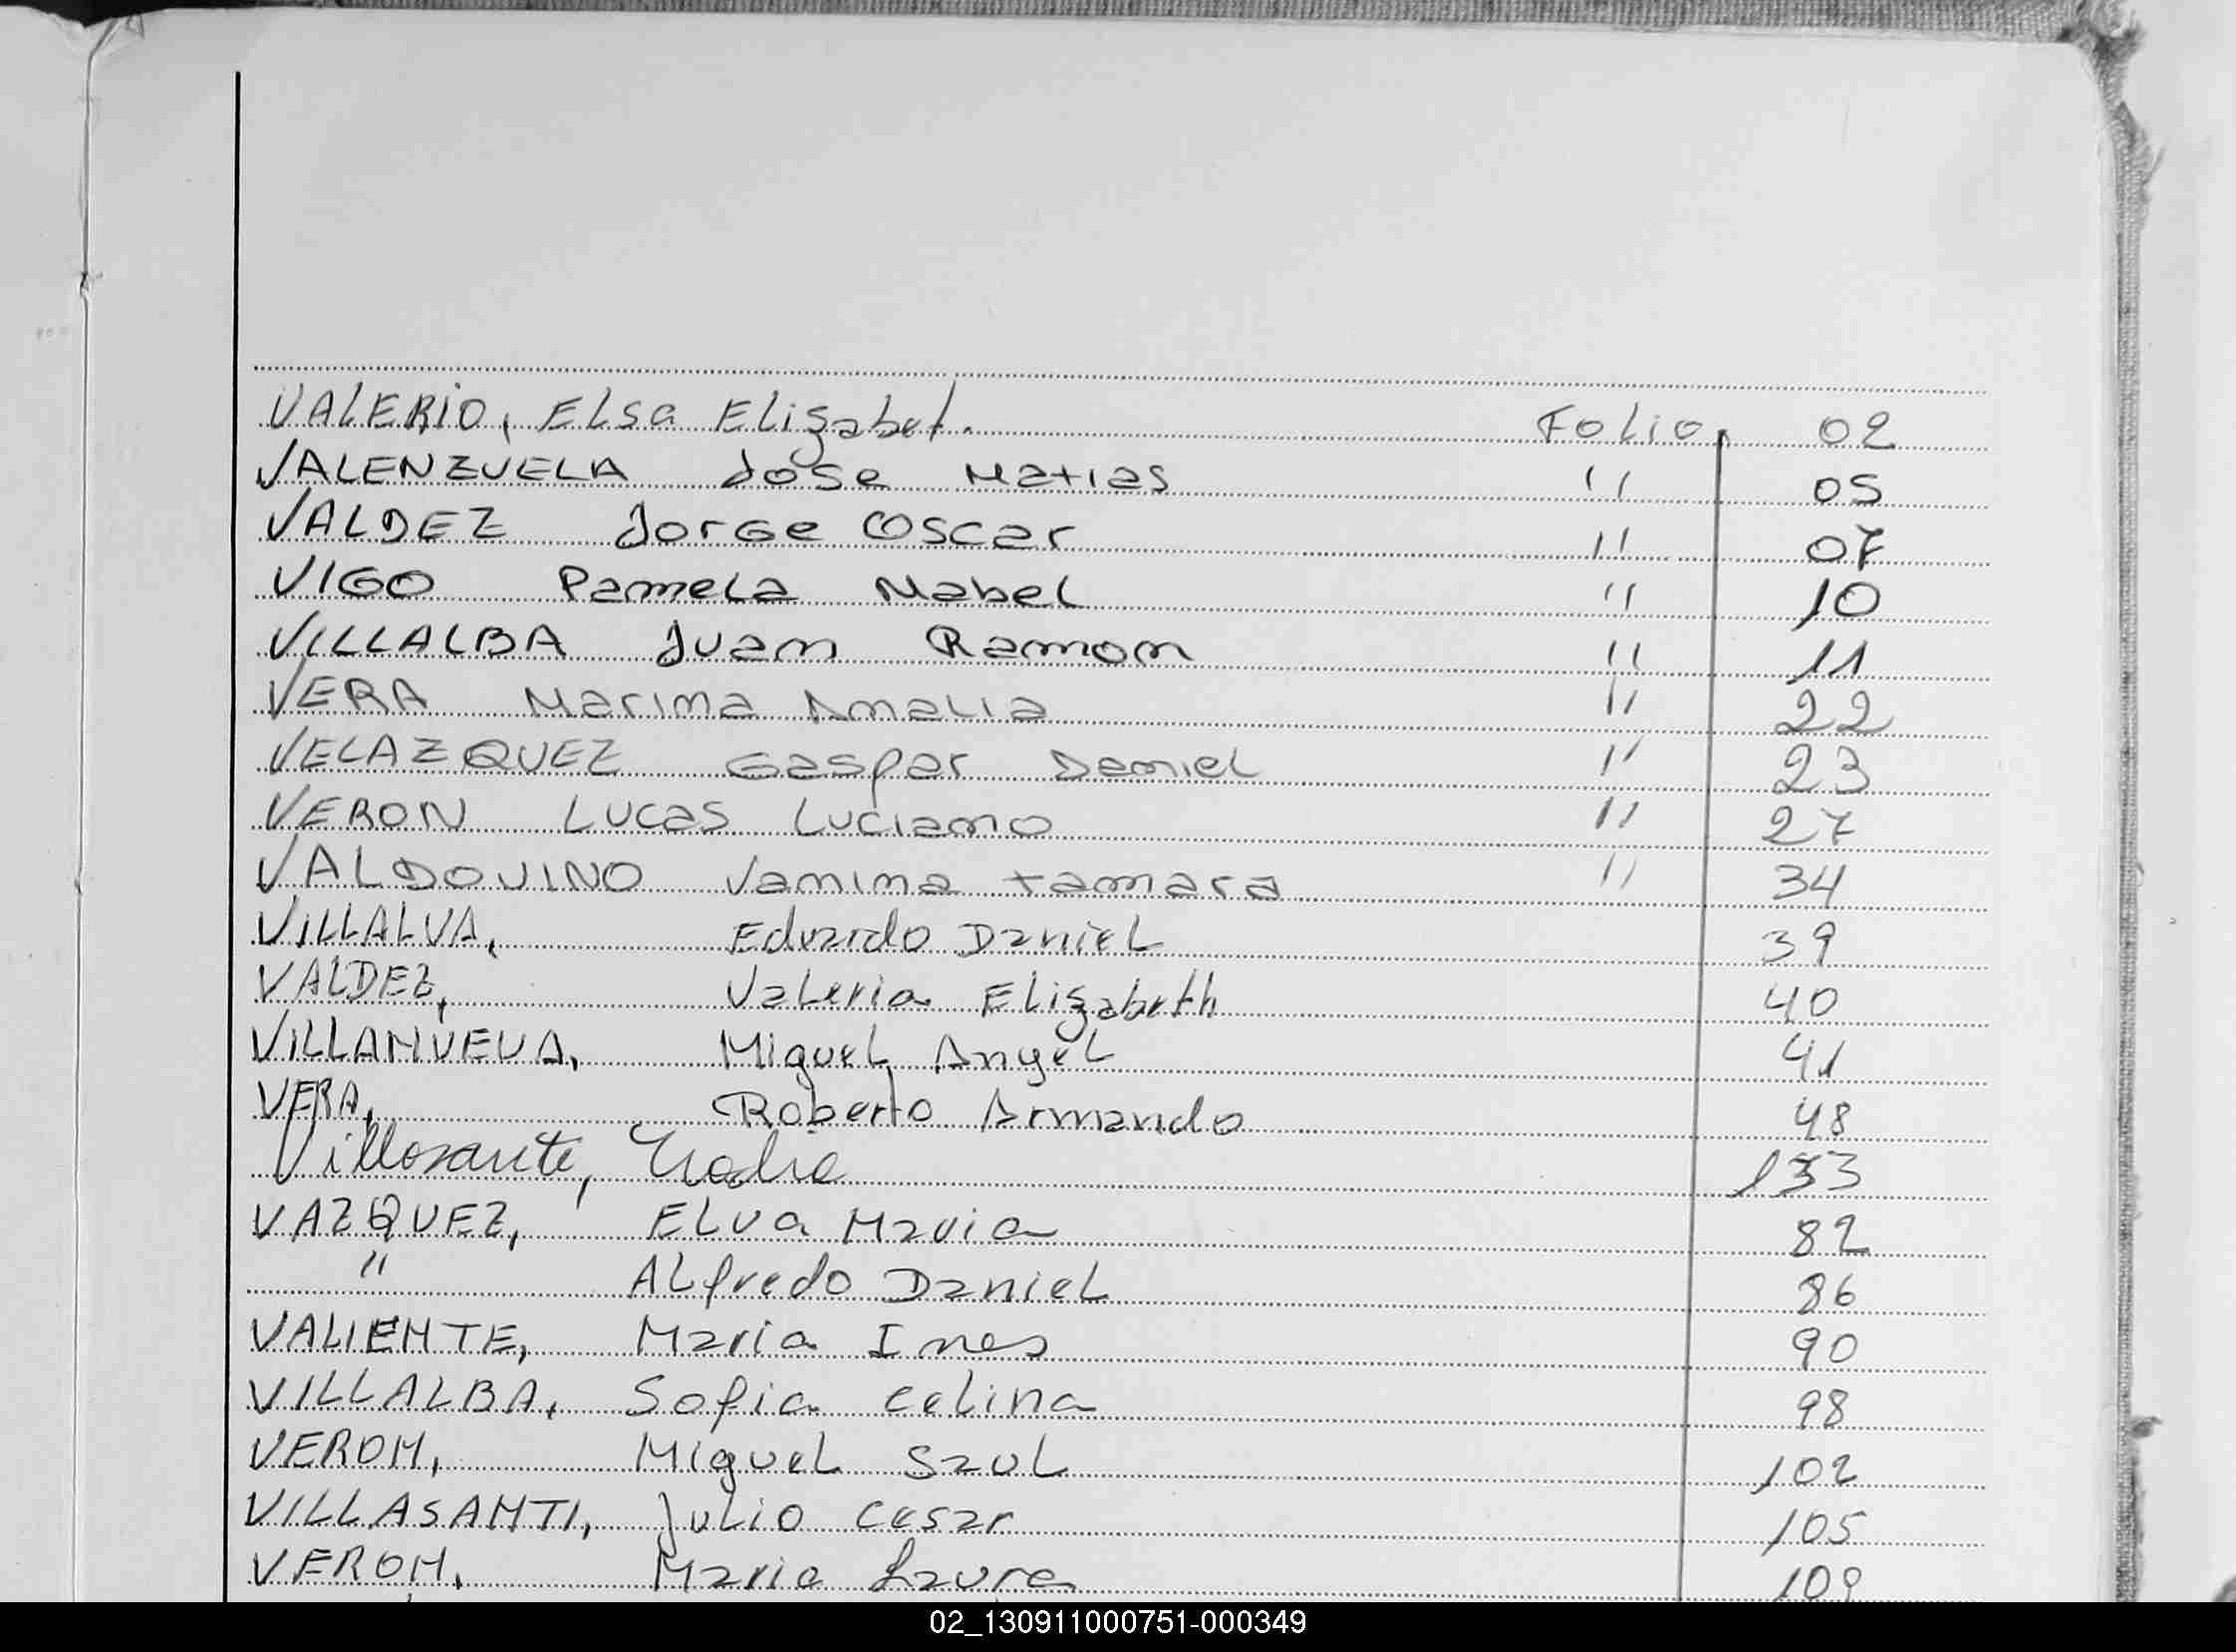 VALERIO, ELSa ELizabet. Folio 02
VALENZUELA Jose Matias " 05
VALDEZ Jorge Oscar " 07
VIGO Pamela Mabel " 10
VILLALBA Juan Ramon " 11
VERA Marina Amalia " 22
VELAZQUEZ Gaspar Daniel " 23
VERON Lucas Luciano " 27
VALDOVINO Vanina tamara " 34
VILLALVA, Eduardo Daniel 39
VALDEZ, Valeria Elizabeth 40
VILLANUEVA, Miguel Angel 41
VERA, Roberto Armando 48
Villosante, 133
VAZQUEZ, Elva Maria 82
" Alfredo Daniel 86
VALIENTE, Maria Ines 90
VILLALBA, Sofia Celina 98
VERON, Miguel Saul 102
VILLASANTI, Julio Cesar 105
VERON, Maria Laura 109
02_130911000751-000349